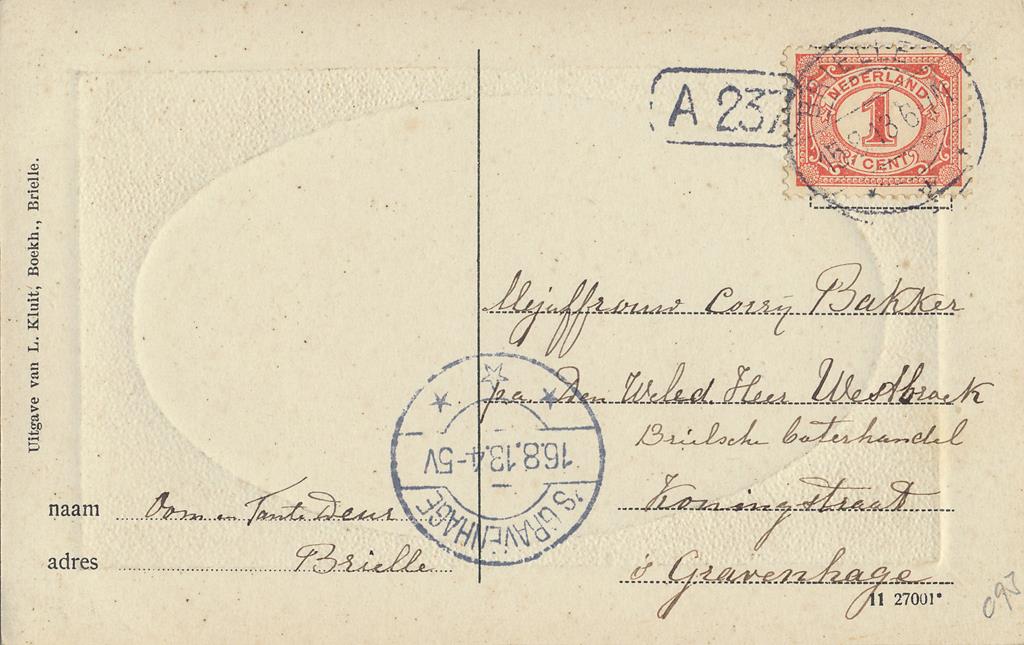 Uitgave van L. Kluit, Boekh., Brielle.
A 237
BRIELLE
15.8.13.6-7N
NEDERLAND
1
1 CENT
Mejuffrouw Corry Bakker
pa. Den Weled. Heer Westbroek
Brielsche boterhandel
Koningstraat
's Gravenhage
'S GRAVENHAGE
16.8.13.4-5V
naam Oom en Tante Deur
adres Brielle
11 27001*